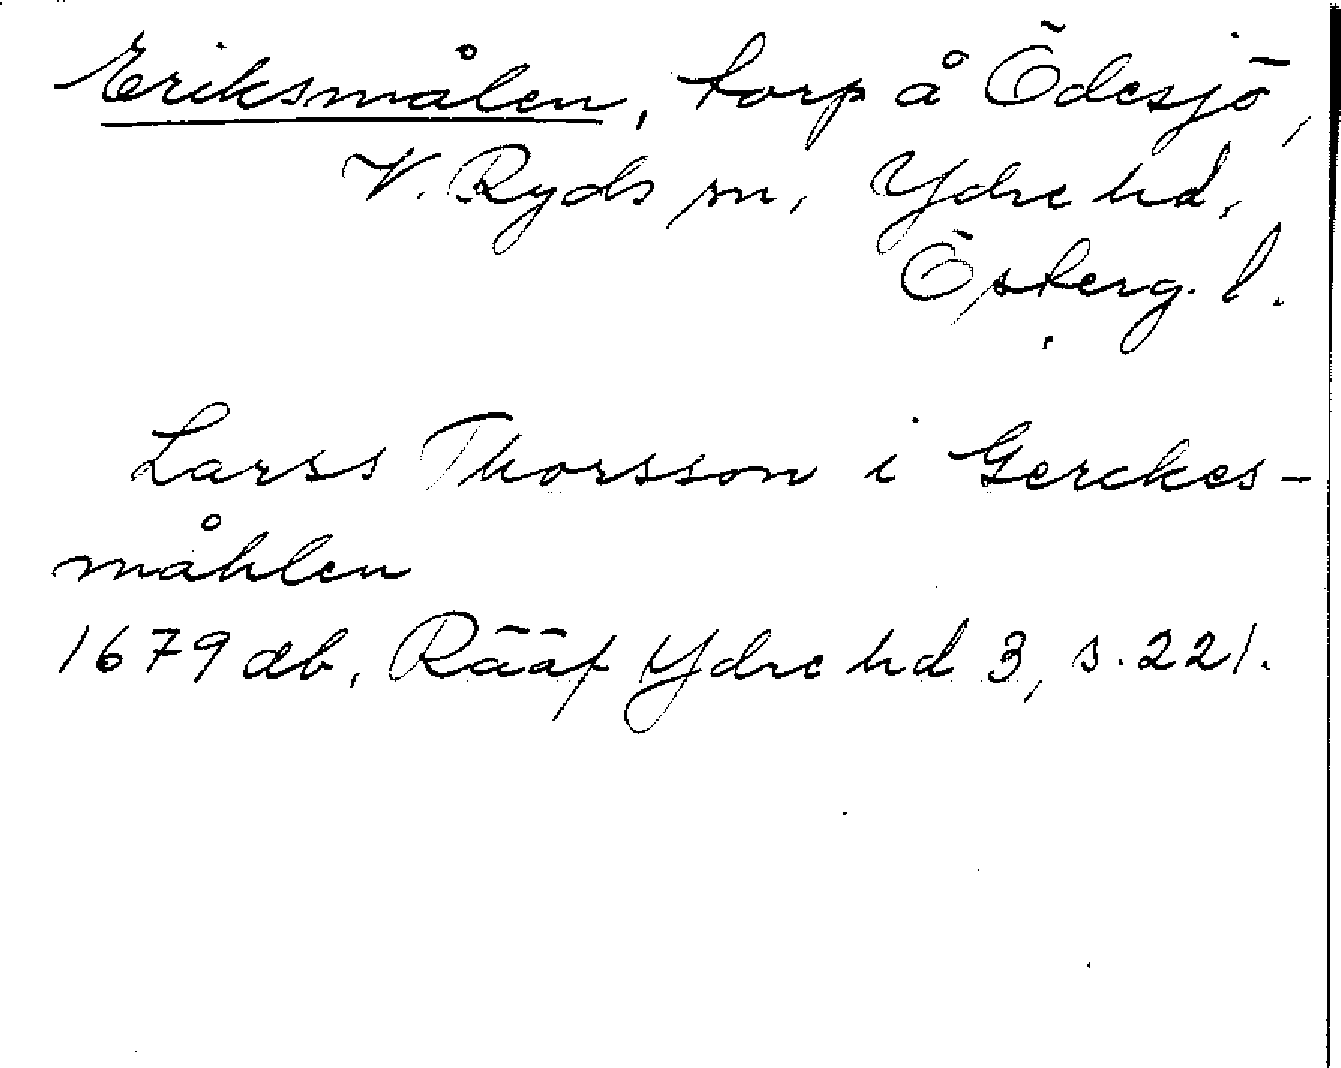 Eriksmålen, torp å Ödesjö,
V. Ryds sn, Ydre hd,
Österg. l.
Larss Thorsson i Gerckes-
måhlen
1679 db, Rääf Ydre hd 3, s. 221.